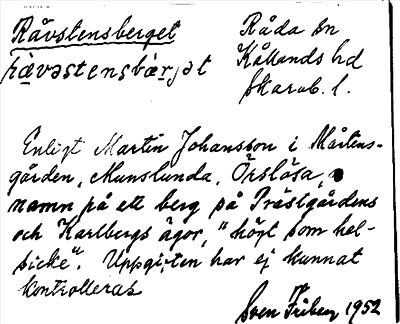 Råvstensberget
rävəstensbärjət
Råda sn
Kållands hd
Skarab. l.
Enligt Martin Johansson i Mårtens-
gården, Munslunda, Örslösa,
namn på ett berg på Prästgårdens
och Karlbergs ägor, "högt som hel-
sicke". Uppgiften har ej kunnat
kontrolleras
Sven Friberg 1952